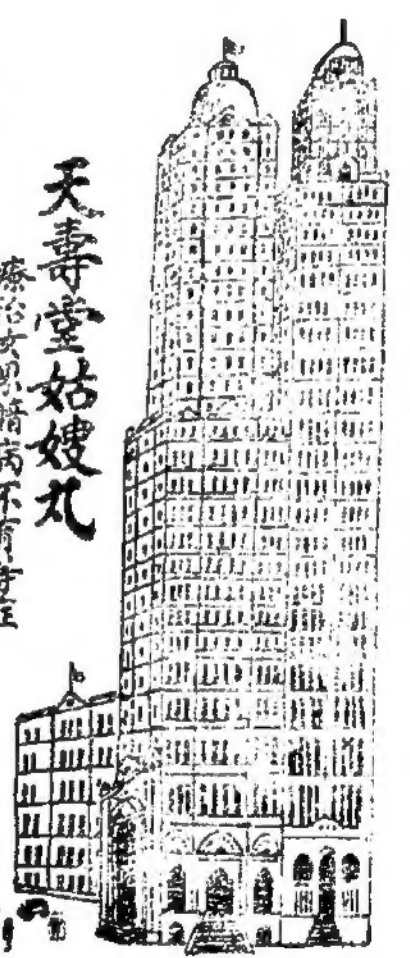 天壽堂姑嫂丸
療治女界暗病不育